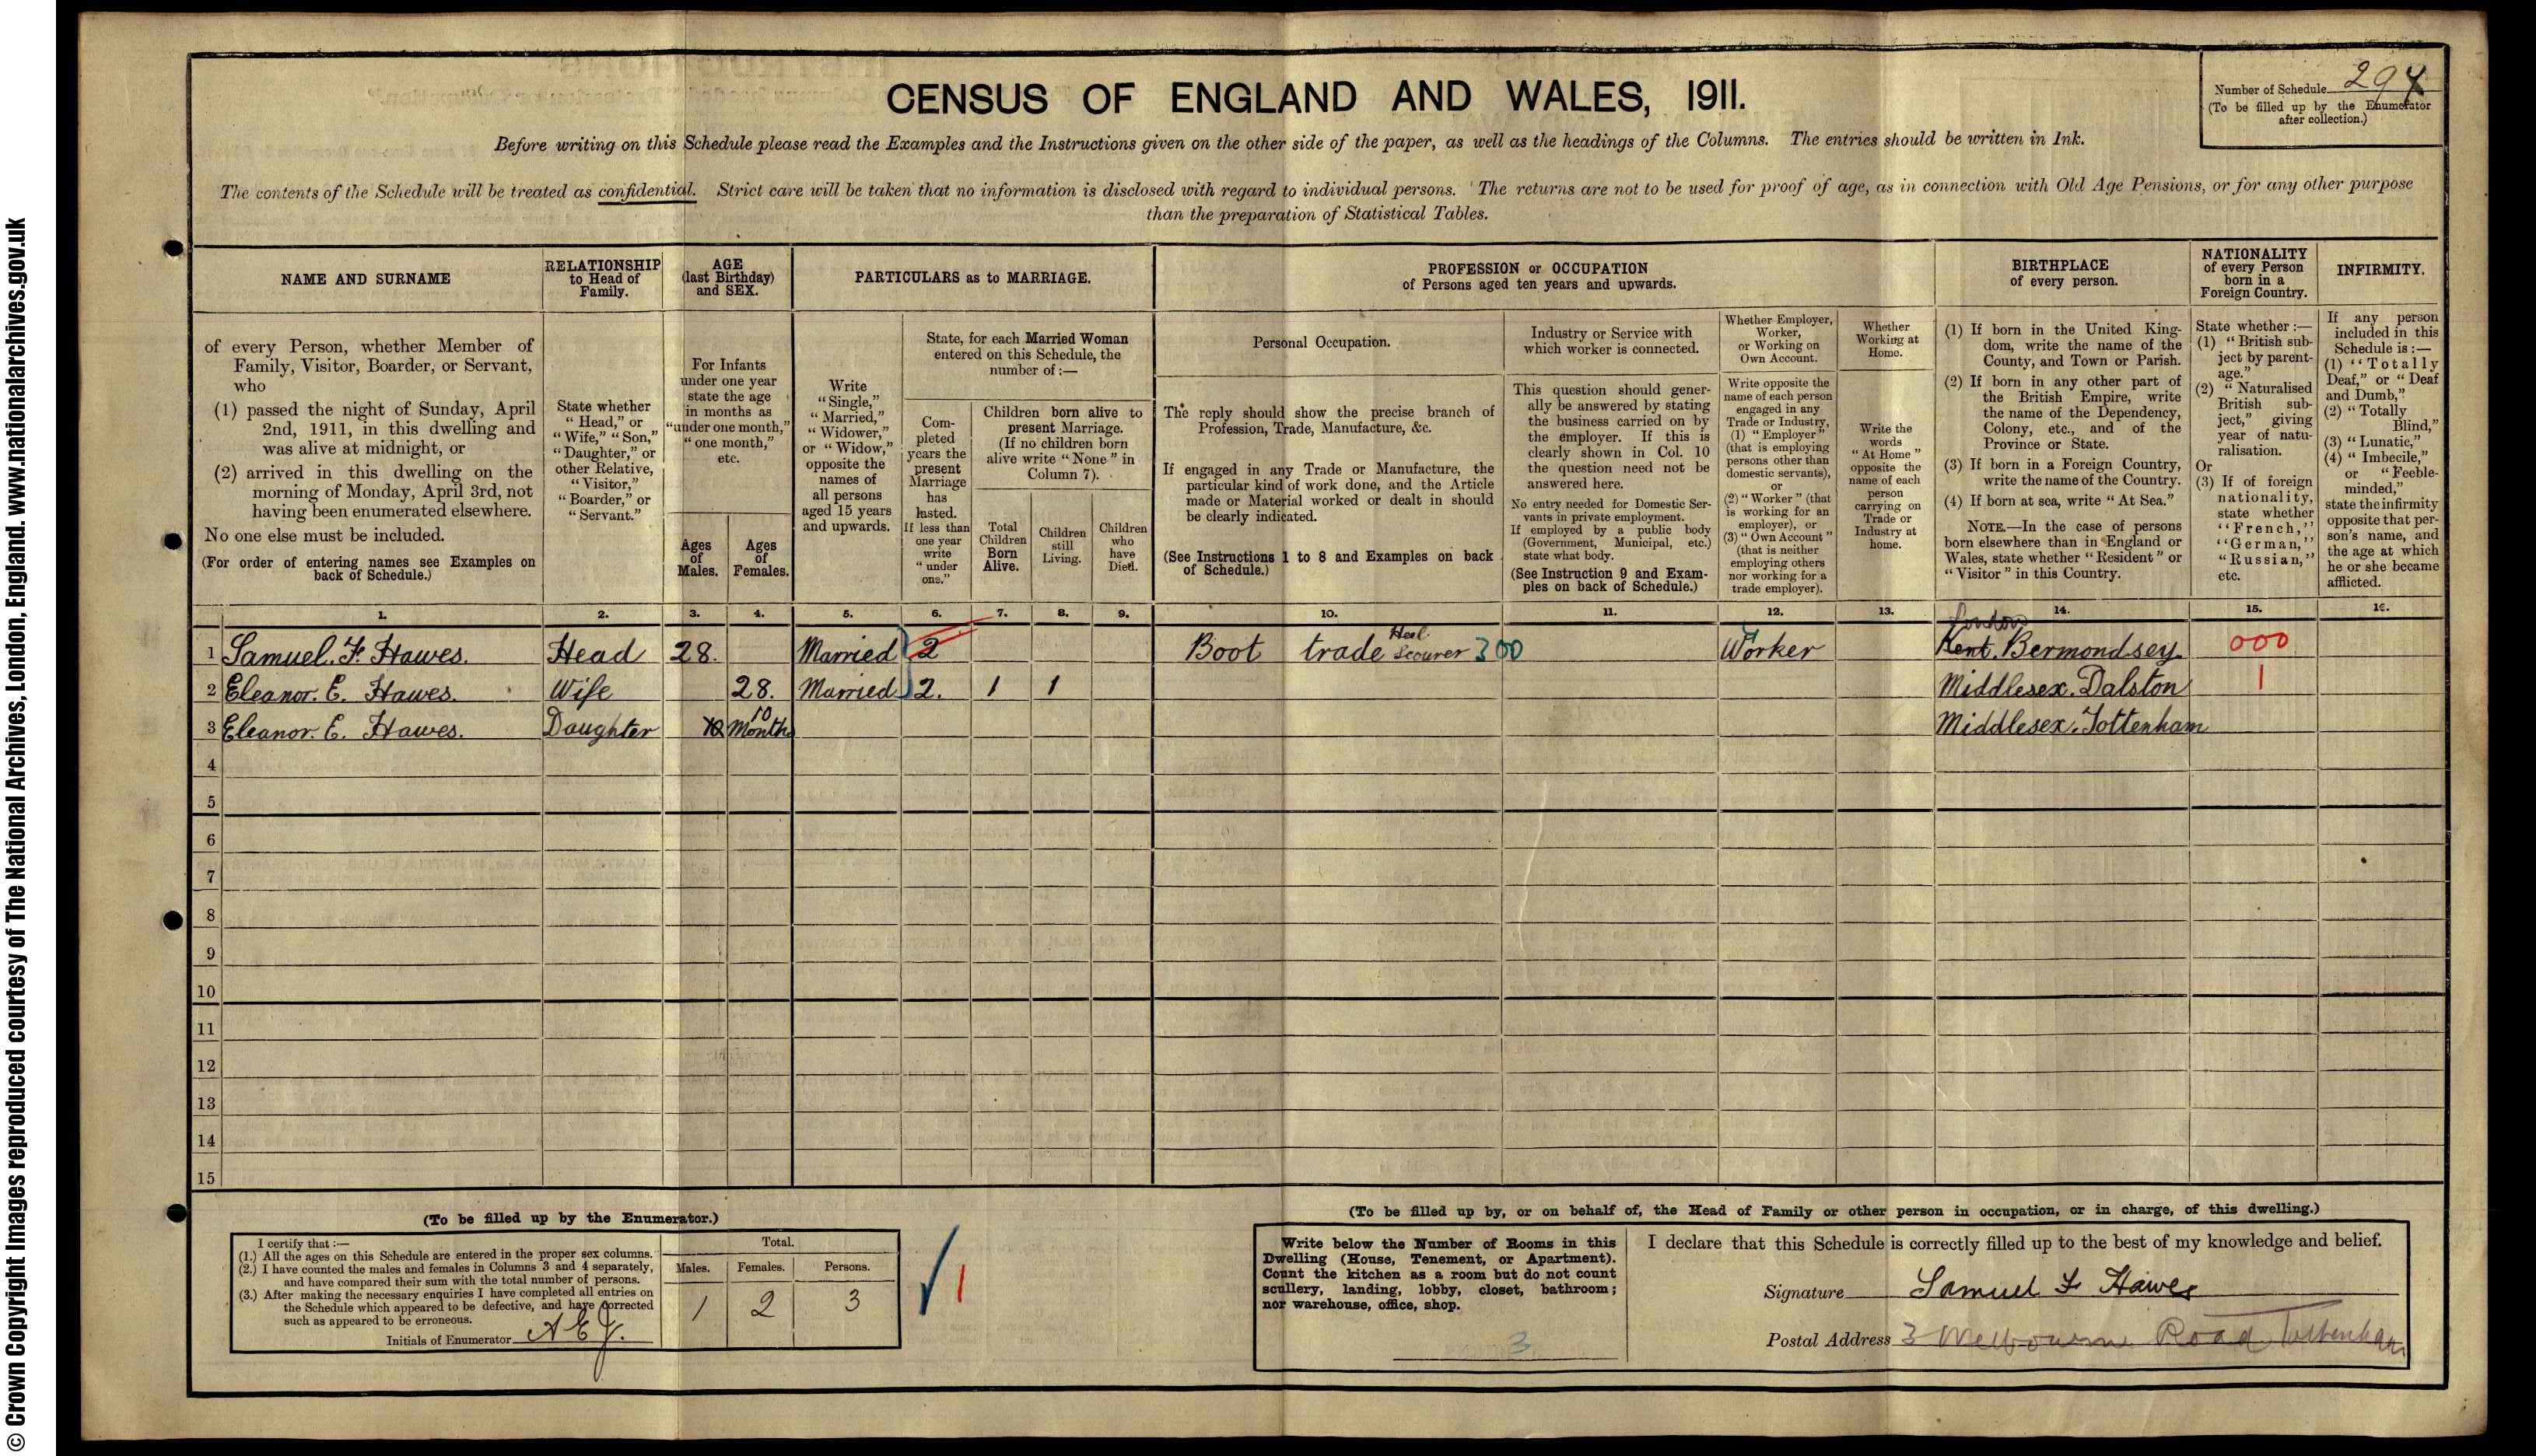 © Crown Copyright Images reproduced courtesy of The National Archives, London, England. www.nationalarchives.gov.uk
CENSUS OF ENGLAND AND WALES, 1911.
Number of Schedule 294
(To be filled up by the Enumerator
after collection.)
Before writing on this Schedule please read the Examples and the Instructions given on the other side of the paper, as well as the headings of the Columns. The entries should be written in Ink.
The contents of the Schedule will be treated as confidential. Strict care will be taken that no information is disclosed with regard to individual persons. The returns are not to be used for proof of age, as in connection with Old Age Pensions, or for any other purpose
than the preparation of Statistical Tables.
NAME AND SURNAME
of every Person, whether Member of
Family, Visitor, Boarder, or Servant,
who
(1) passed the night of Sunday, April
2nd, 1911, in this dwelling and
was alive at midnight, or
(2) arrived in this dwelling on the
morning of Monday, April 3rd, not
having been enumerated elsewhere.
No one else must be included.
(For order of entering names see Examples on
back of Schedule.)
RELATIONSHIP
to Head of
Family.
State whether
"Head," or
"Wife," "Son,"
"Daughter," or
other Relative,
"Visitor,"
"Boarder," or
"Servant."
AGE
(last Birthday)
and SEX.
For Infants
under one year
state the age
in months as
"under one month,"
"one month,"
etc.
Ages
of
Males.
Ages
of
Females.
PARTICULARS as to MARRIAGE.
Write
"Single,"
"Married,"
"Widower,"
or "Widow,"
opposite the
names of
all persons
aged 15 years
and upwards.
State, for each Married Woman
entered on this Schedule, the
number of :—
Com-
pleted
years the
present
Marriage
has
lasted.
If less than
one year
write
"under
one."
Children born alive to
present Marriage.
(If no children born
alive write "None" in
Column 7).
Total
Children
Born
Alive.
Children
still
Living.
Children
who
have
Died.
PROFESSION or OCCUPATION
of Persons aged ten years and upwards.
Personal Occupation.
The reply should show the precise branch of
Profession, Trade, Manufacture, &c.
If engaged in any Trade or Manufacture, the
particular kind of work done, and the Article
made or Material worked or dealt in should
be clearly indicated.
(See Instructions 1 to 8 and Examples on back
of Schedule.)
Industry or Service with
which worker is connected.
This question should gener-
ally be answered by stating
the business carried on by
the employer. If this is
clearly shown in Col. 10
the question need not be
answered here.
No entry needed for Domestic Ser-
vants in private employment.
If employed by a public body
(Government, Municipal, etc.)
state what body.
(See Instruction 9 and Exam-
ples on back of Schedule.)
Whether Employer,
Worker,
or Working on
Own Account.
Write opposite the
name of each person
engaged in any
Trade or Industry,
(1) "Employer"
(that is employing
persons other than
domestic servants),
or
(2) "Worker" (that
is working for an
employer), or
(3) "Own Account"
(that is neither
employing others
nor working for a
trade employer).
Whether
Working at
Home.
Write the
words
"At Home"
opposite the
name of each
person
carrying on
Trade or
Industry at
home.
BIRTHPLACE
of every person.
(1) If born in the United King-
dom, write the name of the
County, and Town or Parish.
(2) If born in any other part of
the British Empire, write
the name of the Dependency,
Colony, etc., and of the
Province or State.
(3) If born in a Foreign Country,
write the name of the Country.
(4) If born at sea, write "At Sea."
NOTE.—In the case of persons
born elsewhere than in England or
Wales, state whether "Resident" or
"Visitor" in this Country.
NATIONALITY
of every Person
born in a
Foreign Country.
State whether :—
(1) "British sub-
ject by parent-
age."
(2) "Naturalised
British sub-
ject," giving
year of natu-
ralisation.
Or
(3) If of foreign
nationality,
state whether
"French,"
"German,"
"Russian,"
etc.
INFIRMITY.
If any person
included in this
Schedule is :—
(1) "Totally
Deaf," or "Deaf
and Dumb,"
(2) "Totally
Blind,"
(3) "Lunatic,"
(4) "Imbecile,"
or "Feeble-
minded,"
state the infirmity
opposite that per-
son's name, and
the age at which
he or she became
afflicted.
1. 2. 3. 4. 5. 6. 7. 8. 9. 10. 11. 12. 13. 14. 15. 16.
London
1 Samuel. F. Hawes. Head 28. Married 2 Boot trade Heel Scourer 300 Worker Kent. Bermondsey. 000
2 Eleanor. E. Hawes. Wife 28. Married 2. 1 1 Middlesex. Dalston 1
3 Eleanor. E. Hawes. Daughter 10 Months Middlesex. Tottenham
4
5
6
7
8
9
10
11
12
13
14
15
(To be filled up by the Enumerator.)
I certify that :—
(1.) All the ages on this Schedule are entered in the proper sex columns.
(2.) I have counted the males and females in Columns 3 and 4 separately,
and have compared their sum with the total number of persons.
(3.) After making the necessary enquiries I have completed all entries on
the Schedule which appeared to be defective, and have corrected
such as appeared to be erroneous.
Initials of Enumerator A E J.
Total.
Males. Females. Persons.
1 2 3
1
(To be filled up by, or on behalf of, the Head of Family or other person in occupation, or in charge, of this dwelling.)
Write below the Number of Rooms in this
Dwelling (House, Tenement, or Apartment).
Count the kitchen as a room but do not count
scullery, landing, lobby, closet, bathroom;
nor warehouse, office, shop.
3
I declare that this Schedule is correctly filled up to the best of my knowledge and belief.
Signature Samuel F Hawes
Postal Address 3 Melbourne Road Tottenham